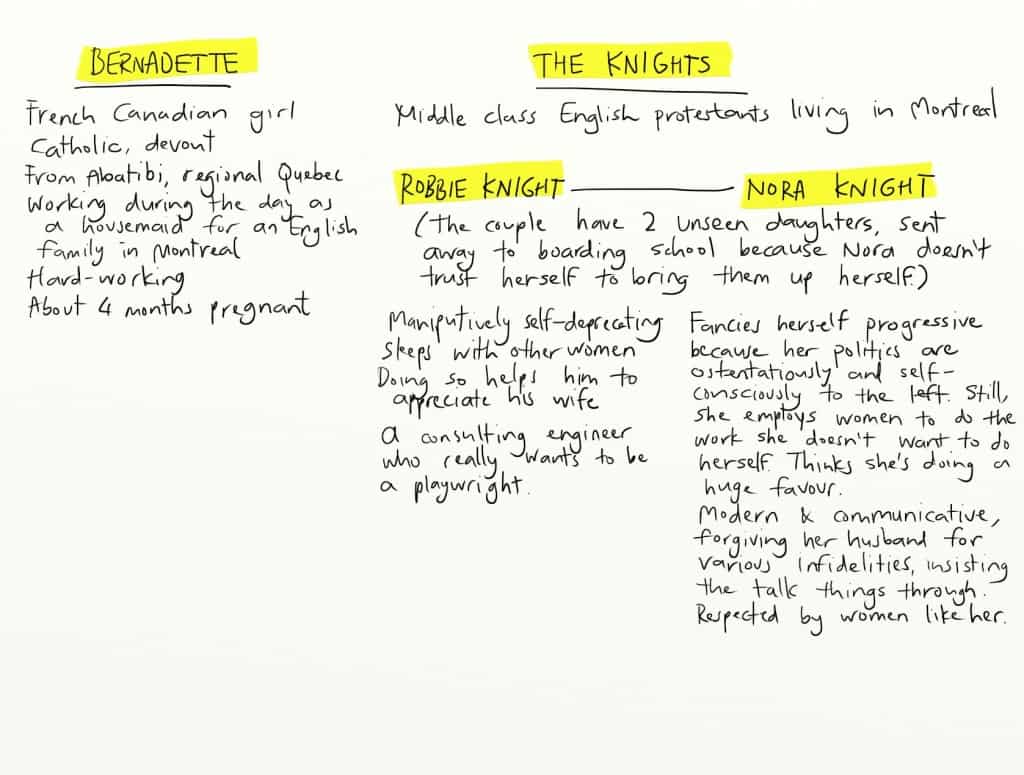 BERNADETTE
French Canadian girl
Catholic, devout
From Abatibi, regional Quebec
Working during the day as
a housemaid for an English
family in Montreal
Hard-working
About 4 months pregnant
THE KNIGHTS
Middle class English protestants living in Montreal
ROBBIE KNIGHT
NORA KNIGHT
(The couple have 2 unseen daughters, sent
away to boarding school because Nora doesn't
trust herself to bring them up herself.)
Maniputively self-deprecating
Sleeps with other women
Doing so helps him to
appreciate his wife
A consulting engineer
who really wants to be
a playwright.
Fancies herself progressive
because her politics are
ostentatiously and self-
consciously to the left. Still,
she employs women to do the
work she doesn't want to do
herself. Thinks she's doing a
huge favour.
Modern & communicative,
forgiving her husband for
various infidelities, insisting
the talk things through.
Respected by women like her.